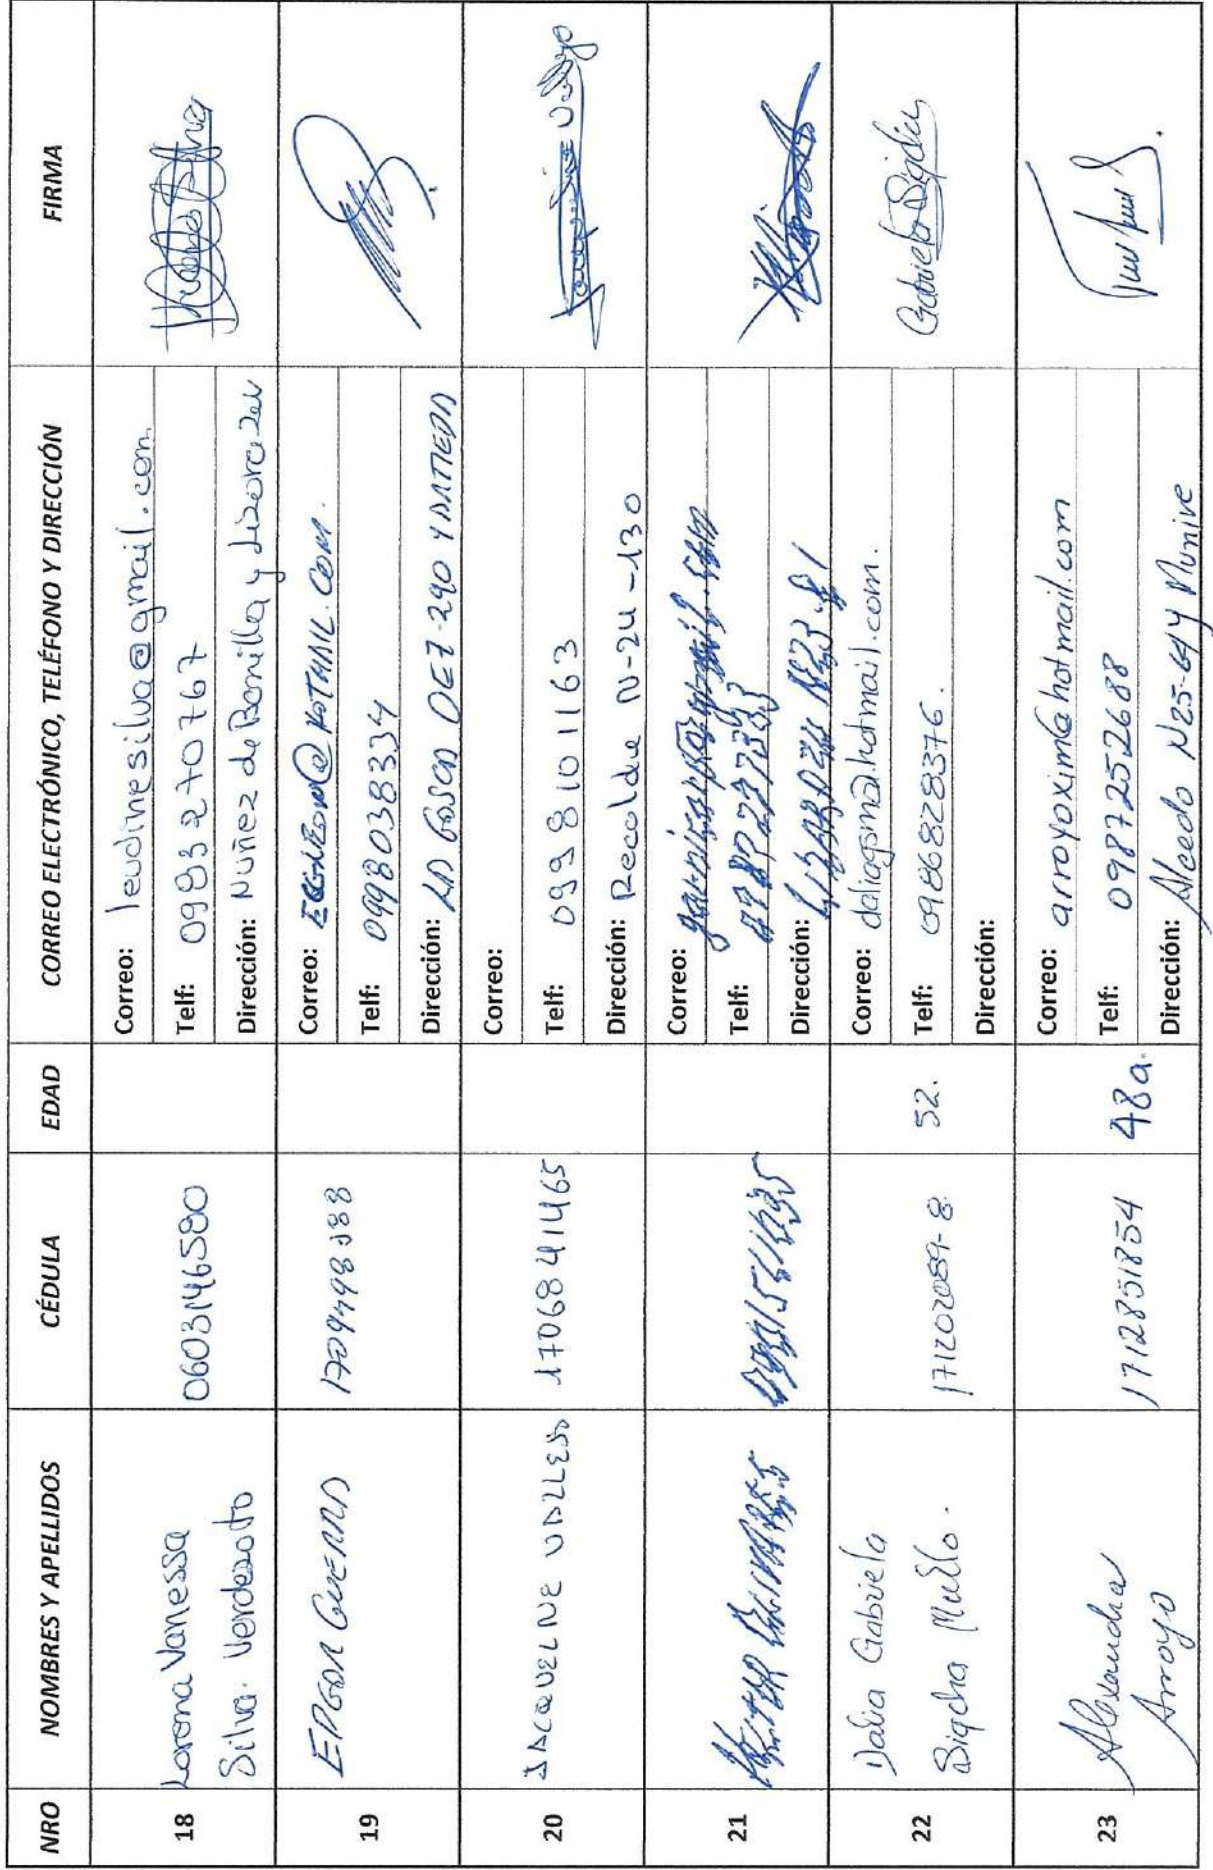 NRO NOMBRES Y APELLIDOS CÉDULA EDAD CORREO ELECTRÓNICO, TELÉFONO Y DIRECCIÓN FIRMA
18
Lorena Vanessa
Silva Verdezoto
0603146580
Correo: leudinesilva@gmail.com.
Telf: 0993270767
Dirección: Nuñez de Bonilla y
19
EDGAR GUERRA
Correo: HOTMAIL.COM.
Telf: 0998038334
Dirección: LA GASCA OE7-290
20
JACQUELINE VALLEJO
1706841465
Correo:
Telf: 0998101163
Dirección: Recalde N-24-130
21
Correo:
Telf:
Dirección:
22
Dalia Gabriela
Sigcha Mullo.
171202089-8
52.
Correo: daliagsma@hotmail.com.
Telf: 0986828376.
Dirección:
Gabriela Sigcha
23
Alexandra
Arroyo
1712851854
48a.
Correo: arroyoxim@hotmail.com
Telf: 0987252688
Dirección: Alcedo N25-64y Munive